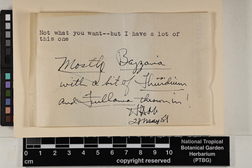 Not what you want--but I have a lot of
this one
Mostly Bazzania
with a bit of Thuidium
and Frullania thrown in!
cm
0 1 2 3 4 5 6 7 8 9 10
National Tropical
Botanical Garden
Herbarium
(PTBG)